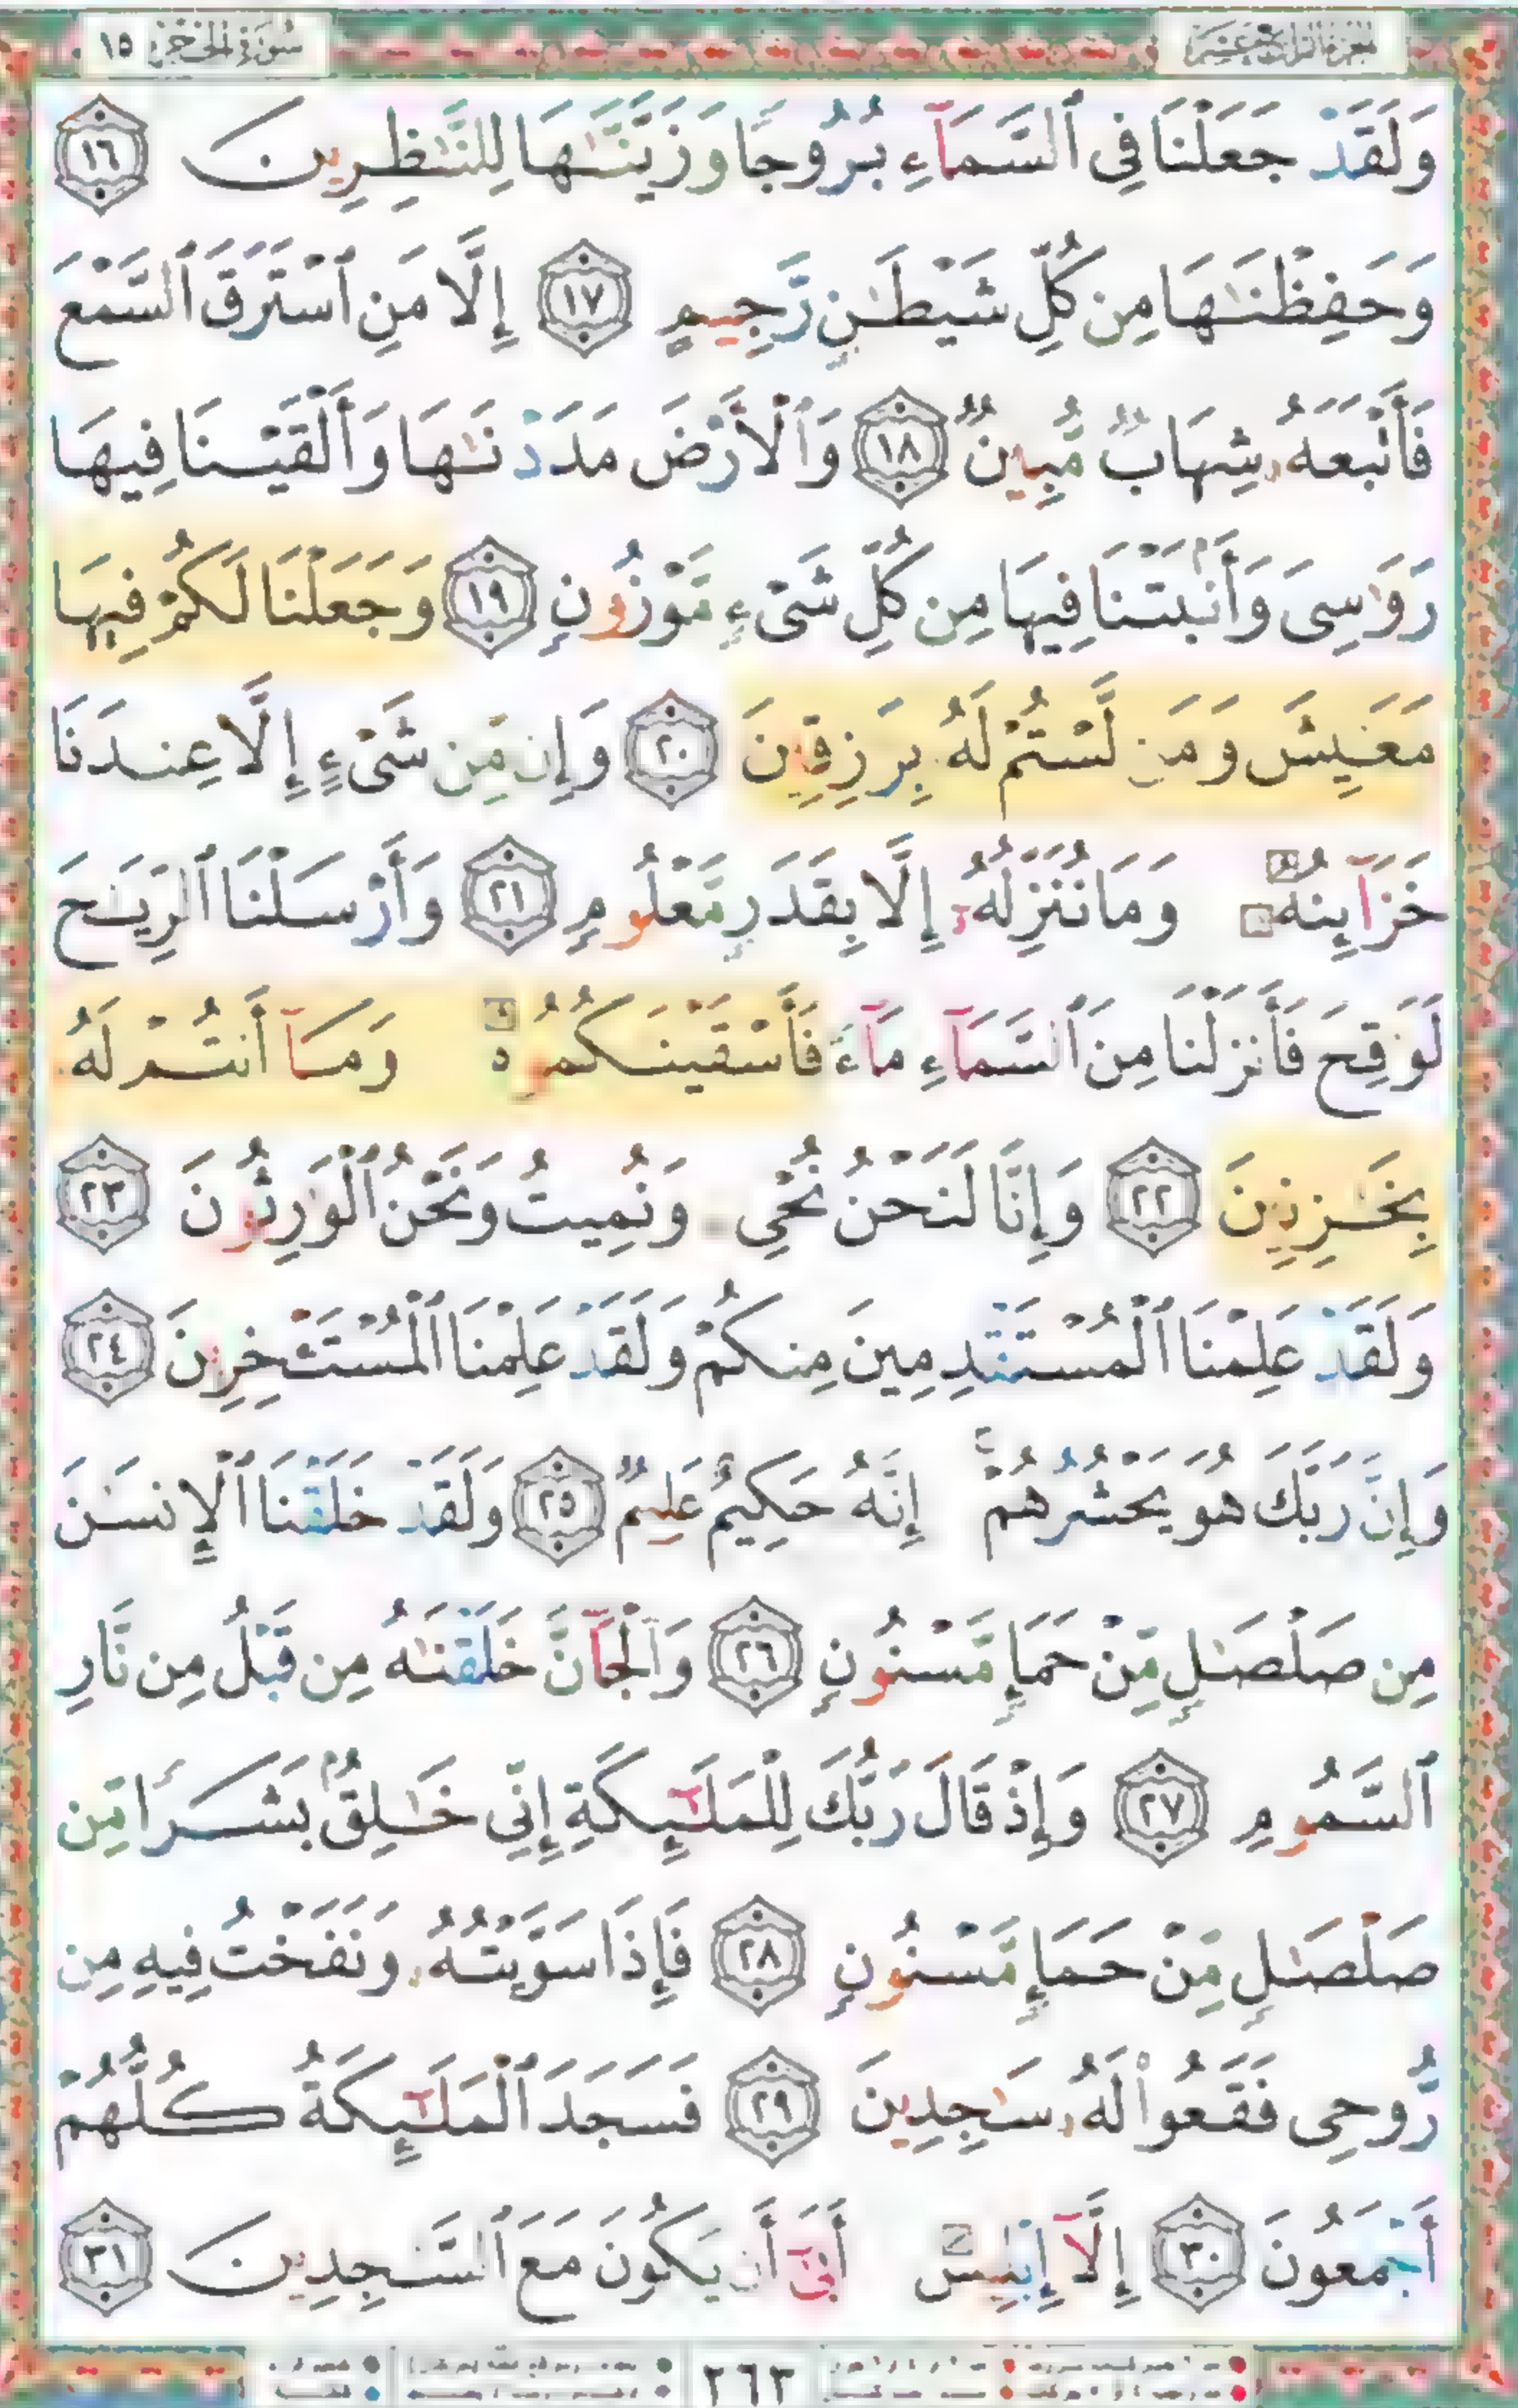 سورة الحجر ١٥
الجزء الرابع عشر
وَلَقَدْ جَعَلْنَا فِى ٱلسَّمَآءِ بُرُوجًا وَزَيَّنَّٰهَا لِلنَّٰظِرِينَ ١٦
وَحَفِظْنَٰهَا مِن كُلِّ شَيْطَٰنٍ رَّجِيمٍ ١٧ إِلَّا مَنِ ٱسْتَرَقَ ٱلسَّمْعَ
فَأَتْبَعَهُۥ شِهَابٌ مُّبِينٌ ١٨ وَٱلْأَرْضَ مَدَدْنَٰهَا وَأَلْقَيْنَا فِيهَا
رَوَٰسِىَ وَأَنۢبَتْنَا فِيهَا مِن كُلِّ شَىْءٍ مَّوْزُونٍ ١٩ وَجَعَلْنَا لَكُمْ فِيهَا
مَعَٰيِشَ وَمَن لَّسْتُمْ لَهُۥ بِرَٰزِقِينَ ٢٠ وَإِن مِّن شَىْءٍ إِلَّا عِندَنَا
خَزَآئِنُهُۥ وَمَا نُنَزِّلُهُۥٓ إِلَّا بِقَدَرٍ مَّعْلُومٍ ٢١ وَأَرْسَلْنَا ٱلرِّيَٰحَ
لَوَٰقِحَ فَأَنزَلْنَا مِنَ ٱلسَّمَآءِ مَآءً فَأَسْقَيْنَٰكُمُوهُ وَمَآ أَنتُمْ لَهُۥ
بِخَٰزِنِينَ ٢٢ وَإِنَّا لَنَحْنُ نُحْىِۦ وَنُمِيتُ وَنَحْنُ ٱلْوَٰرِثُونَ ٢٣
وَلَقَدْ عَلِمْنَا ٱلْمُسْتَقْدِمِينَ مِنكُمْ وَلَقَدْ عَلِمْنَا ٱلْمُسْتَـْٔخِرِينَ ٢٤
وَإِنَّ رَبَّكَ هُوَ يَحْشُرُهُمْ ۚ إِنَّهُۥ حَكِيمٌ عَلِيمٌ ٢٥ وَلَقَدْ خَلَقْنَا ٱلْإِنسَٰنَ
مِن صَلْصَٰلٍ مِّنْ حَمَإٍ مَّسْنُونٍ ٢٦ وَٱلْجَآنَّ خَلَقْنَٰهُ مِن قَبْلُ مِن نَّارِ
ٱلسَّمُومِ ٢٧ وَإِذْ قَالَ رَبُّكَ لِلْمَلَٰٓئِكَةِ إِنِّى خَٰلِقٌۢ بَشَرًا مِّن
صَلْصَٰلٍ مِّنْ حَمَإٍ مَّسْنُونٍ ٢٨ فَإِذَا سَوَّيْتُهُۥ وَنَفَخْتُ فِيهِ مِن
رُّوحِى فَقَعُوا۟ لَهُۥ سَٰجِدِينَ ٢٩ فَسَجَدَ ٱلْمَلَٰٓئِكَةُ كُلُّهُمْ
أَجْمَعُونَ ٣٠ إِلَّآ إِبْلِيسَ أَبَىٰٓ أَن يَكُونَ مَعَ ٱلسَّٰجِدِينَ ٣١
٢٦٣